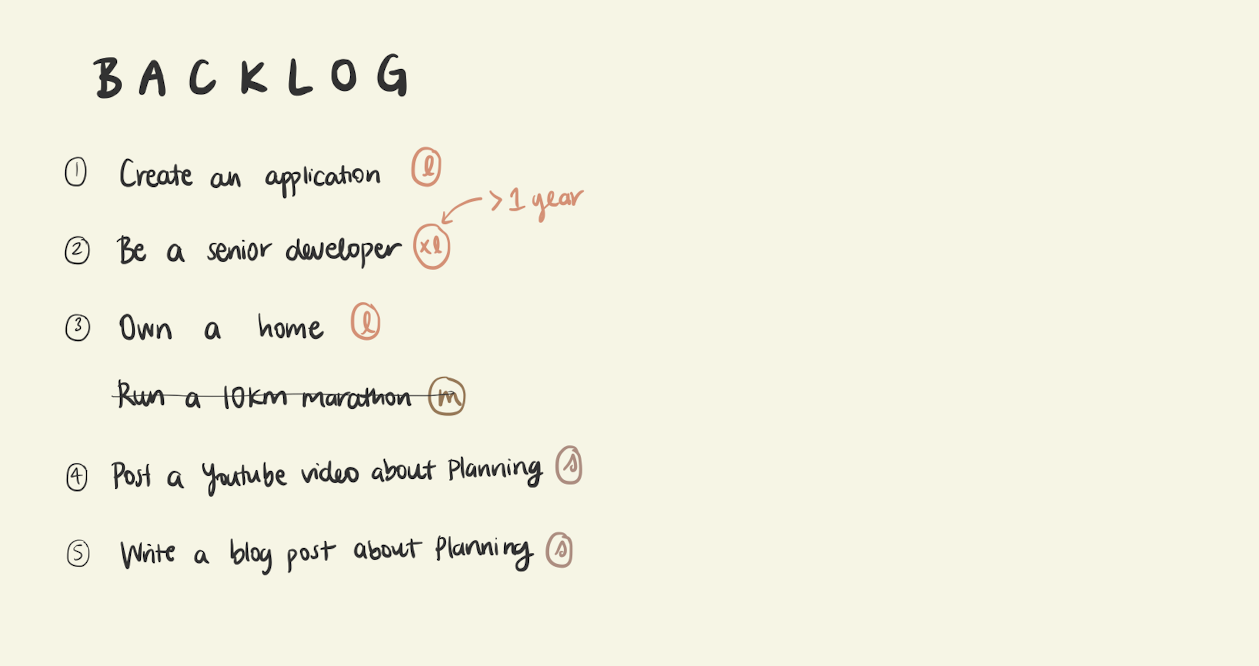 BACKLOG
1 Create an application l
> 1 year
2 Be a senior developer xl
3 Own a home l
Run a 10km marathon m
4 Post a Youtube video about Planning s
5 Write a blog post about Planning s